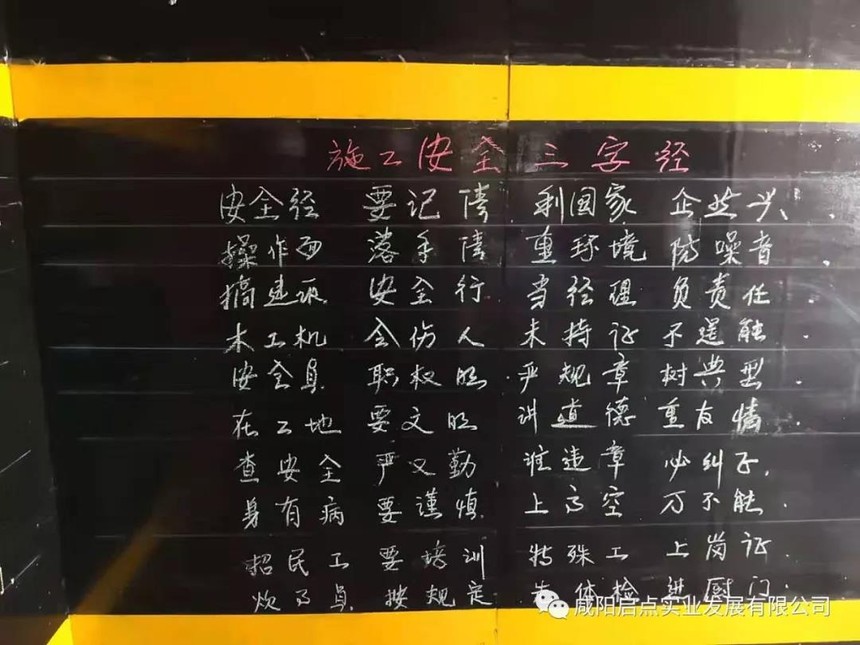 施工安全三字经
安全经 要记清 利国家 企业兴
操作面 落手清 重环境 防噪音
搞建筑 安全行 当经理 负责任
木工机 会伤人 未持证 不逞能
安全员 职权明 严规章 树典型
在工地 要文明 讲道德 重友情
查安全 严又勤 谁违章 必纠正
身有病 要谨慎 上高空 万不能
招民工 要培训 特殊工 上岗证
炊事员 按规定 先体检 进厨门
咸阳启点实业发展有限公司